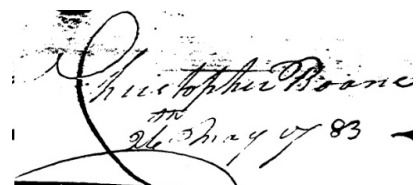 Christopher Boane
26th May 1783